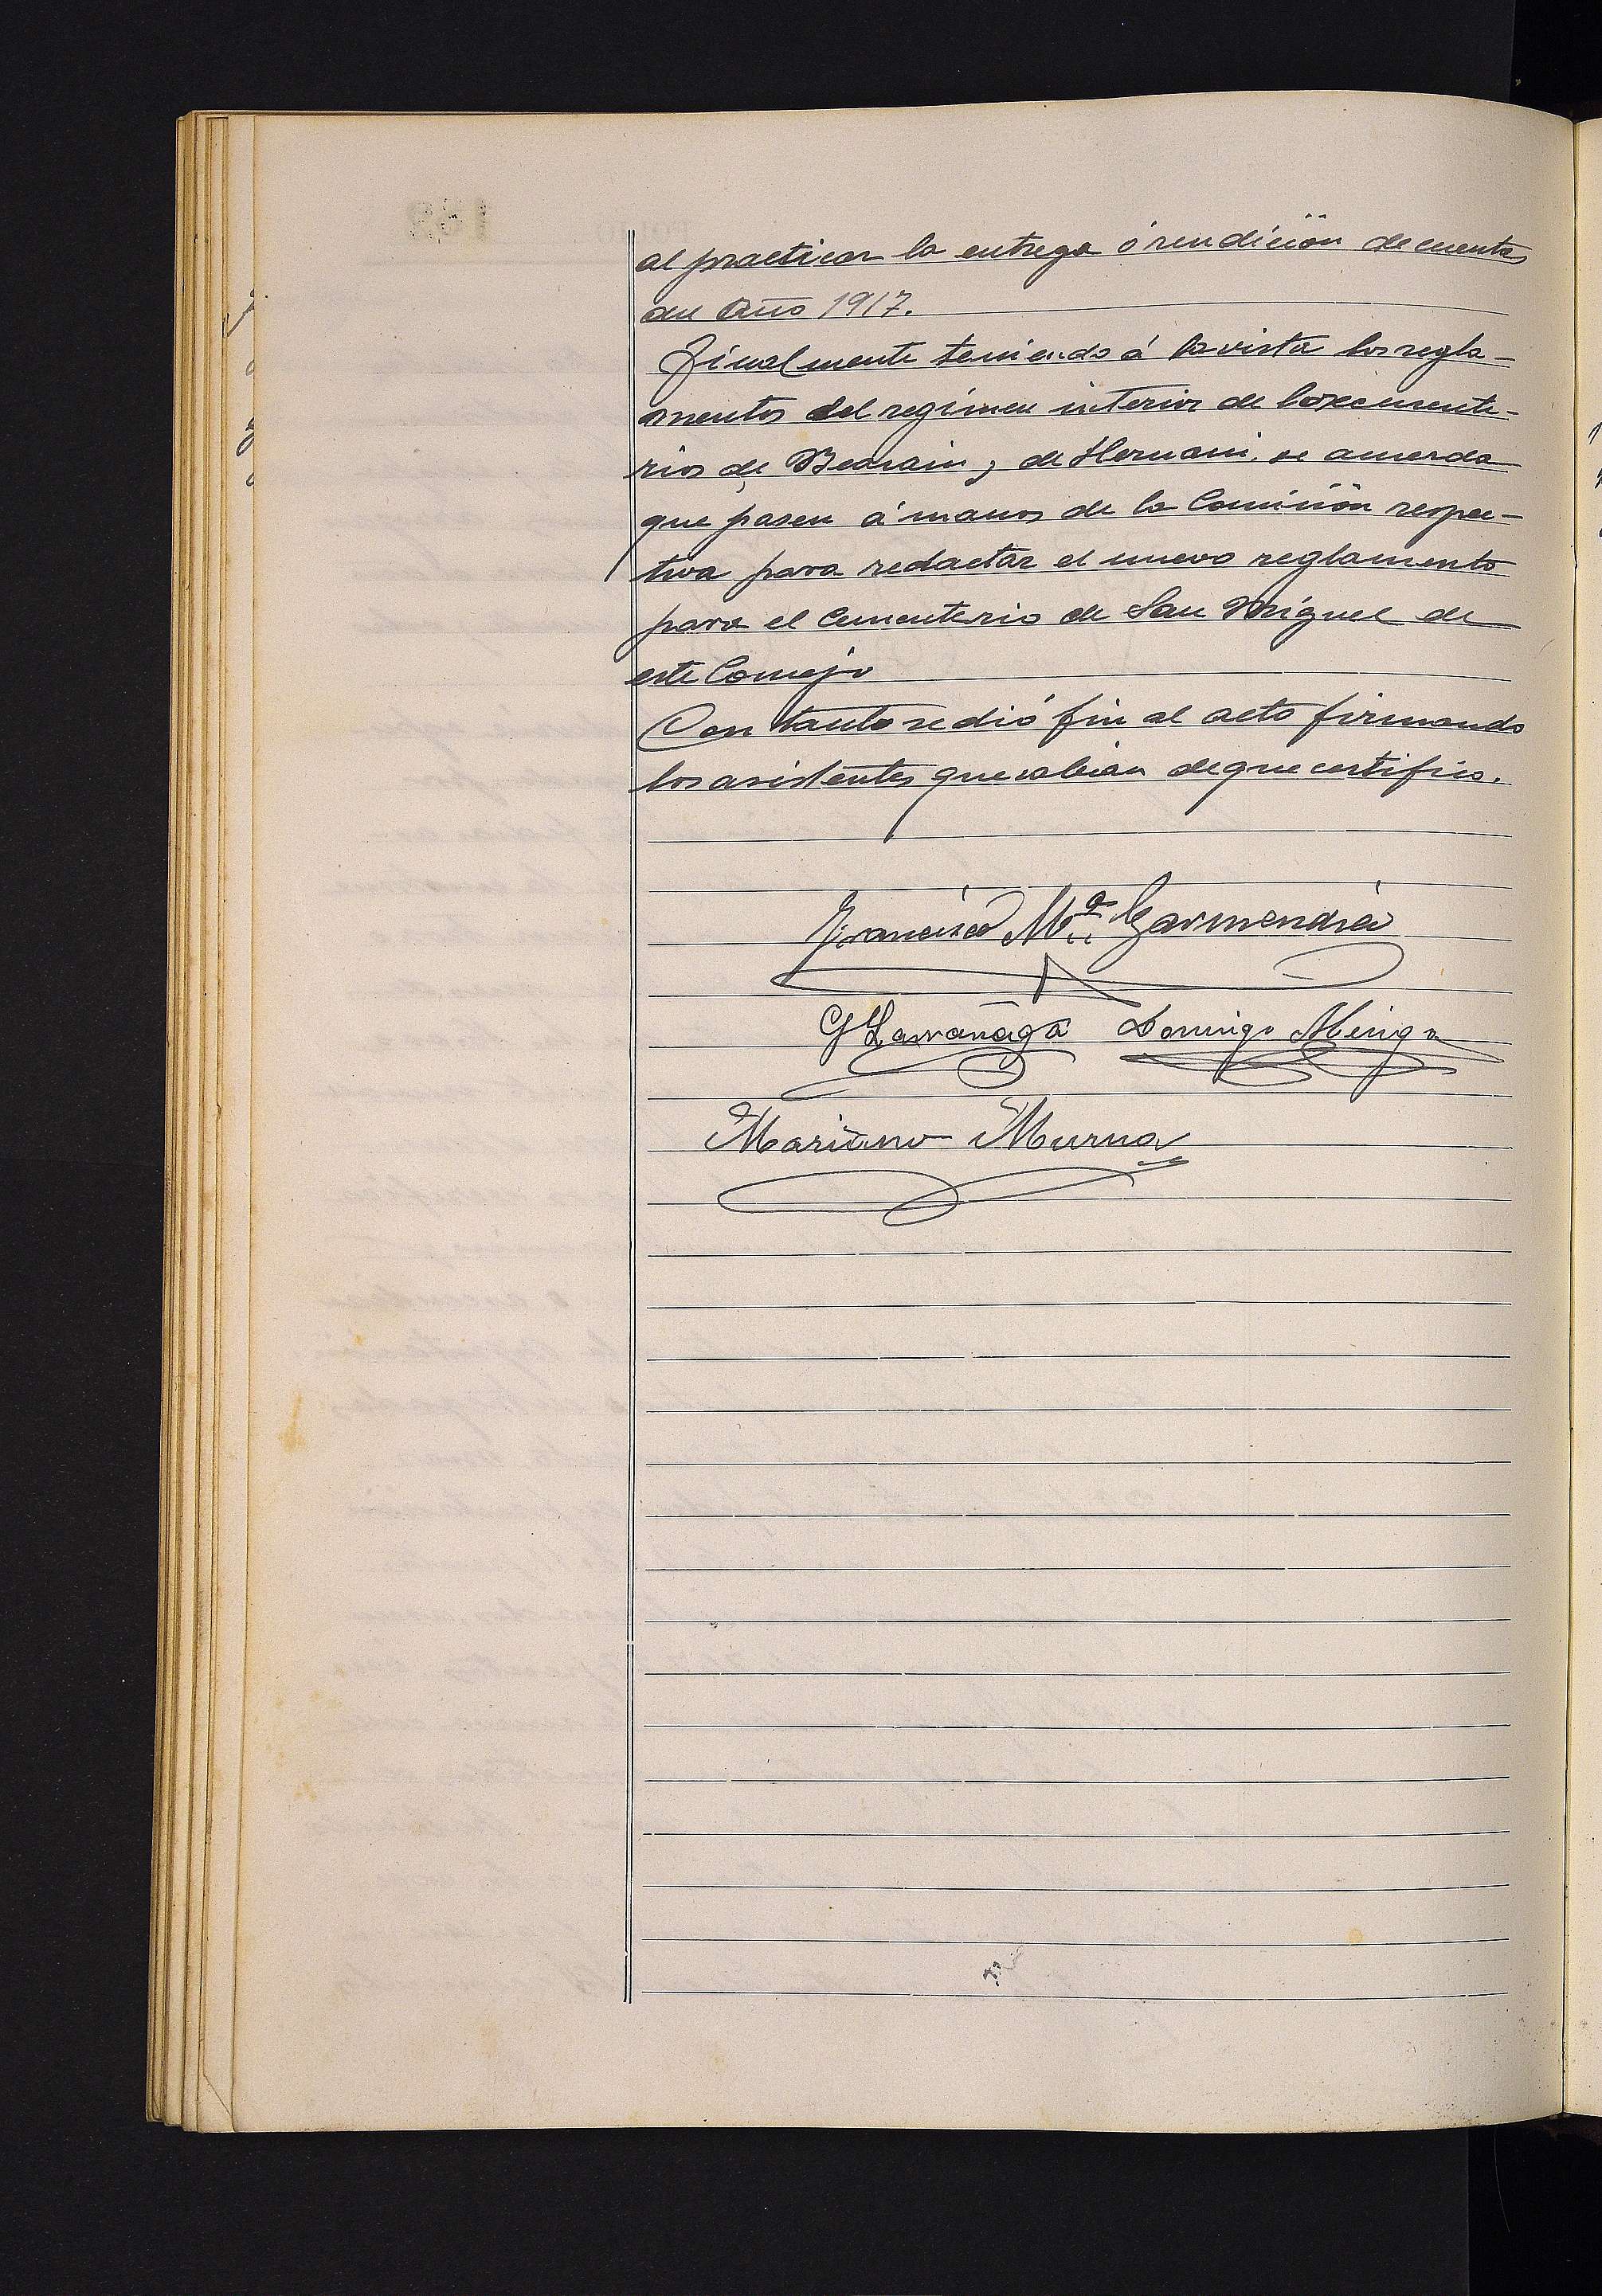 al practicar la entrega ó rendición de cuentas
del Año 1917.
Finalmente teniendo á la vista los regla-
mentos del regimen interior de los cemente-
rios de Beasain, de Hernani, se acuerda
que pasen á manos de la Comisión respec-
tiva para redactar el nuevo reglamento
para el Cementerio de San Miguel de
este Concejo
Con tanto se dió fin al acto firmando
los asistentes que sabian de que certifico.
Francisco Mª Garmendia
G Larrañaga Domingo
Mariano Murua